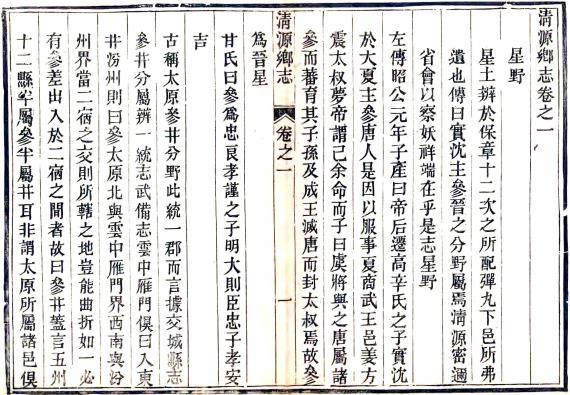 清源鄉志卷之一
星野
星土辨於保章十二次之所配彈丸下邑所弗
遺也傳曰實沈主參晉之分野屬焉清源密邇
省會以察妖祥端在乎是志星野
左傳昭公元年子產曰帝后遷高辛氏之子實沈
於大夏主參唐人是因以服事夏商武王邑姜方
震太叔夢帝謂己余命而子曰虞將與之唐屬諸
參而蕃育其子孫及成王滅唐而封太叔焉故參
清源鄉志 卷之一 一
為晉星
甘氏曰參為忠良孝謹之子明大則臣忠子孝安
吉
古稱太原參井分野此統一郡而言據交城縣志
參井分屬辨一統志武備志雲中雁門俱曰入東
井汾州則曰參太原北與雲中雁門界西南與汾
州界當二宿之交則所轄之地豈能曲折如一必
有參差出入於二宿之間者故曰參井蓋言五州
十二縣半屬參半屬井耳非謂太原所屬諸邑俱